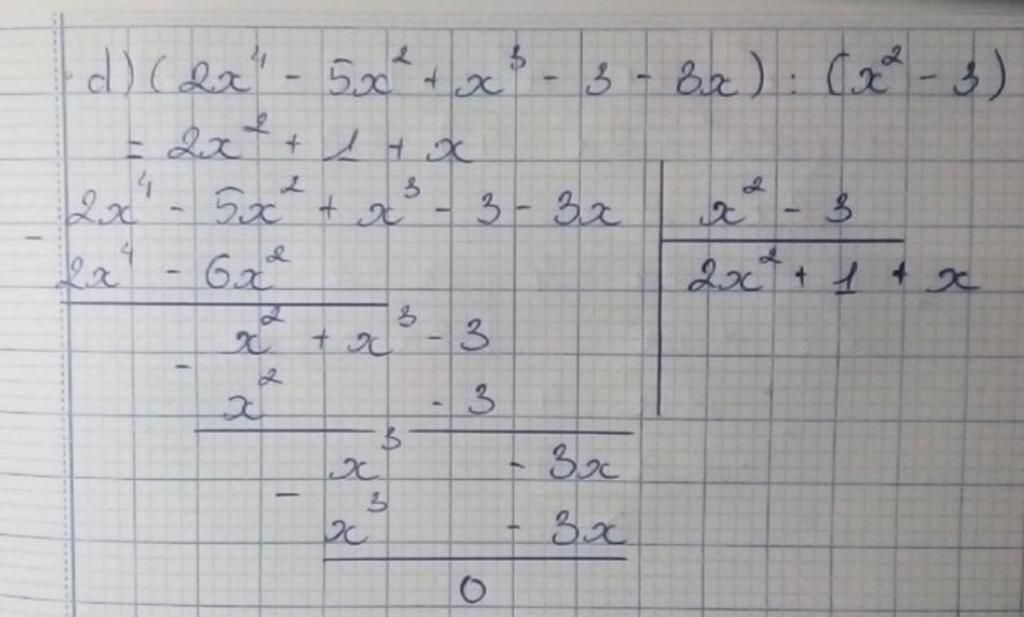 d) (2x⁴ - 5x² + x³ - 3 - 3x) : (x² - 3)
= 2x² + 1 + x
2x⁴ - 5x² + x³ - 3 - 3x | x² - 3
- 2x⁴ - 6x² | 2x² + 1 + x
x² + x³ - 3
- x² - 3
x³ - 3x
- x³ - 3x
0